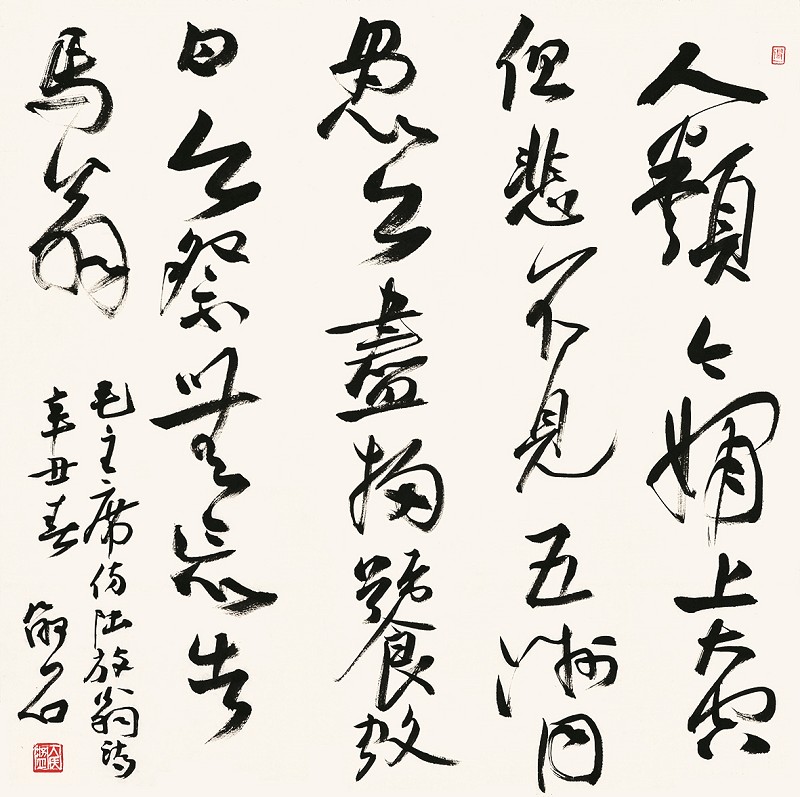 人類今嫻上太空
但悲不見五洲同
愚公盡掃饕蚊
日公祭無忘告
馬翁
毛主席仿陸放翁詩
辛丑春